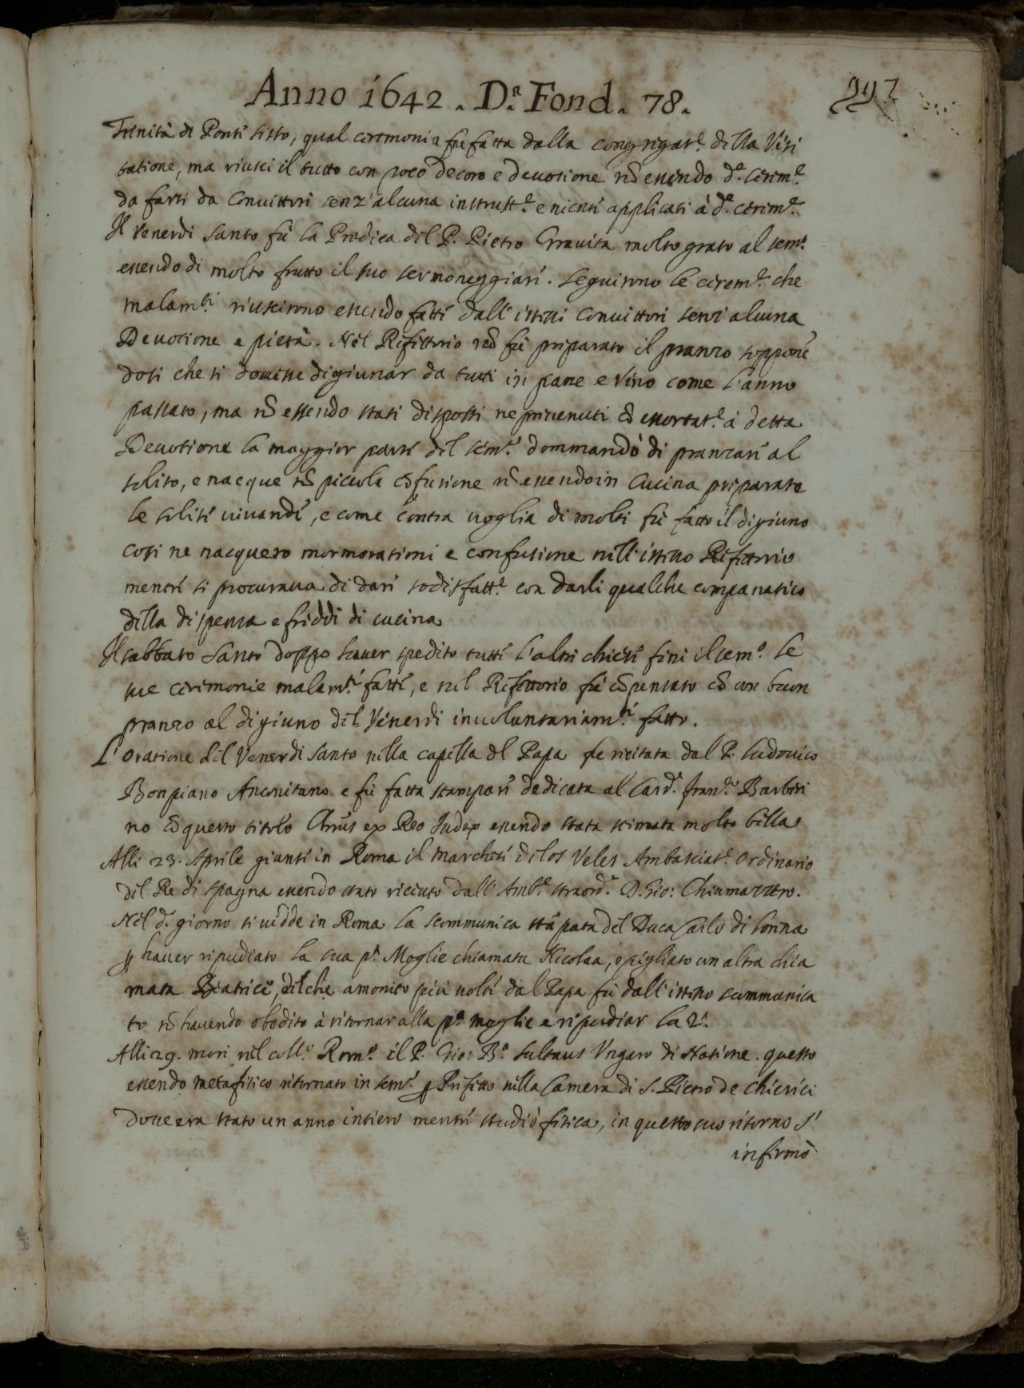 Anno 1642. D.ª Fond. 78.
297
Trinità di Ponte sisto, qual ceremonia fù fatta dalla congregat.e della Visi
tatione, ma riuscì il tutto con poco decoro e devotione nõ essendo d.e cerim.e
da farsi da Convittori senz'alcuna instrutt.e e niente applicati à d.e cerim.e
Il Venerdi Santo fù la Predica del P. Pietro Gravita molto grato al sem.o
essendo di molto frutto il suo sermoneggiare. Seguirono le cerem.e che
malam.te riuscirono essendo fatte dall'istessi Convittori senz'alcuna
Devotione e pietà. Nel Refettorio nõ fù preparato il pranzo suppone˜
dosi che si dovesse digiunar da tutti in pane e vino come l'anno
passato, ma nõ essendo stati disposti ne prevenuti cõ essortat.e à detta
Devotione la maggior parte del sem.o dommandò di pranzare al
solito, e nacque nõ piccola cõfusione nõ essendo in Cucina preparate
le solite vivande, e come contra voglia di molti fù fatto il digiuno
così ne nacquero mormorationi e confusione nell'istesso Refettorio
mentre si procurava di dare sodisfatt.e con darli qualche companatico
della dispensa e freddi di cucina
Il sabbato Santo doppo haver spedito tutte l'altre chiese finì il sem.o le
sue cerimonie malam.te fatte, e nel Refettorio fù cõpensato cõ un buon
pranzo al digiuno del Venerdi involuntariam.te fatto.
L'oratione del Venerdi santo nella capella del Papa fu recitata dal P. Ludovico
Bompiano Anconitano e fù fatta stampare dedicata al Card.e Fran.co Barberi
no cõ questo titolo Chr̃us ex Reo Judex essendo stata stimata molto bella
Alli 23. Aprile giunse in Roma il Marchese de los Veles Ambasciat.e ordinario
del Re di spagna essendo stato ricevuto dall'Amb.e straord.o D. Gio: Chiumazzero.
Nel d.o giorno si vidde in Roma la scommunica stãpata del Duca Carlo di Lorena
ꝑ haver ripudiato la sua p.a Moglie chiamata Nicolaa, e pigliato un altra chia
mata Beatrice, del che amonito più volte dal Papa fù dall'istesso scommunica
to nõ havendo obedito à ritornar alla p.a moglie e ripudiar la 2.a
Alli 29. morì nel coll.o Rom.o il P. Gio: B.a Sultaus Ungaro di Natione. questo
essendo metafisico ritornato in sem.o ꝑ Prefetto nella Camera di S. Pietro de chierici
dove era stato un anno intiero mentre studiò fisica, in questo suo ritorno s'
infirmò